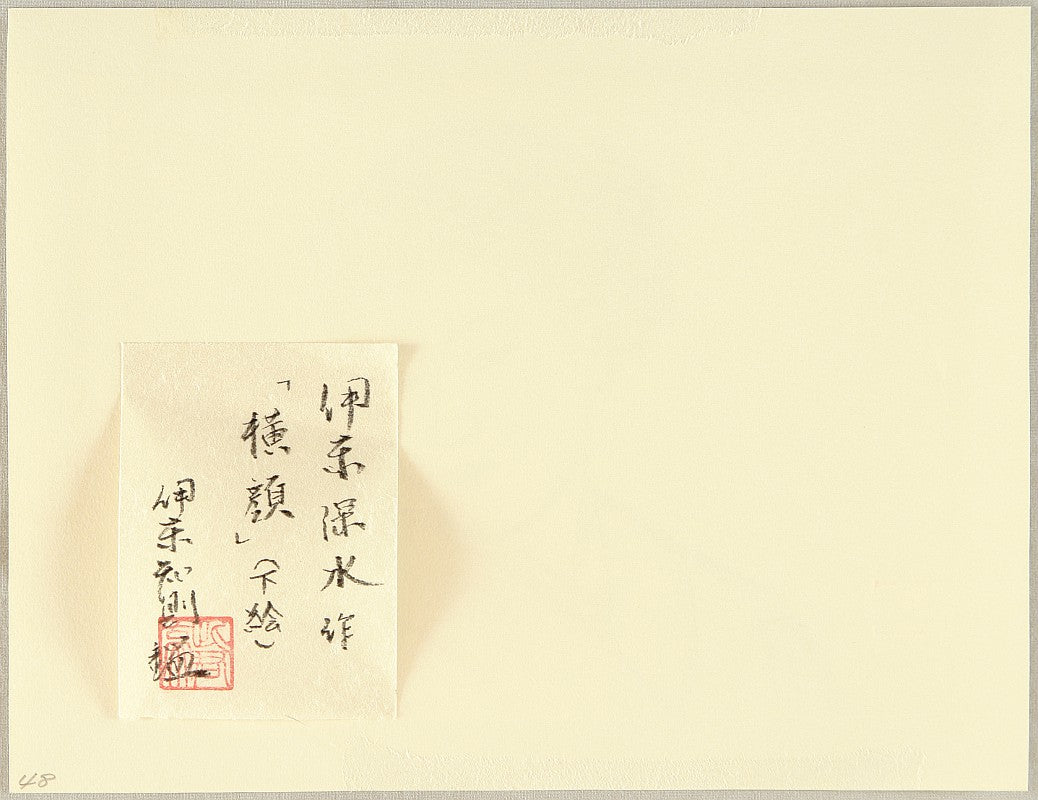 伊東深水作
「横顔」(下絵)
伊東知則 鑑
48